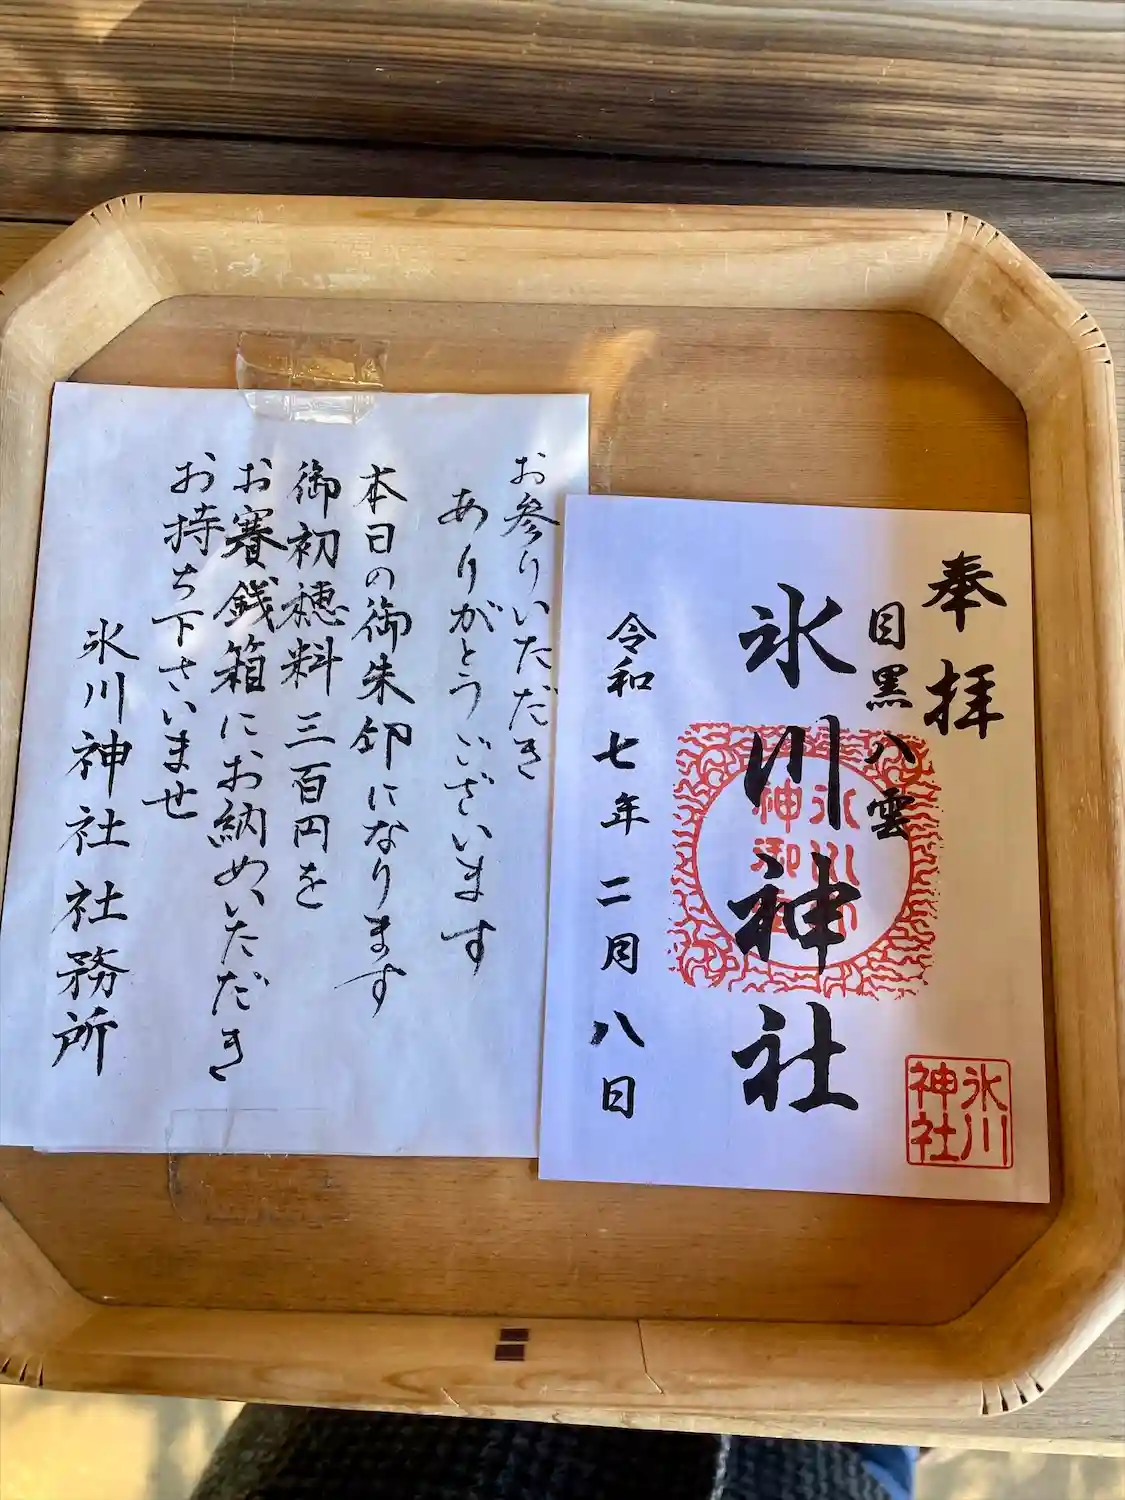 奉拝
目黒八雲
氷川神社
令和七年二月八日
氷川
神社
お参りいただき
ありがとうございます
本日の御朱印になります
御初穂料三百円を
お賽銭箱にお納めいただき
お持ち下さいませ
氷川神社社務所